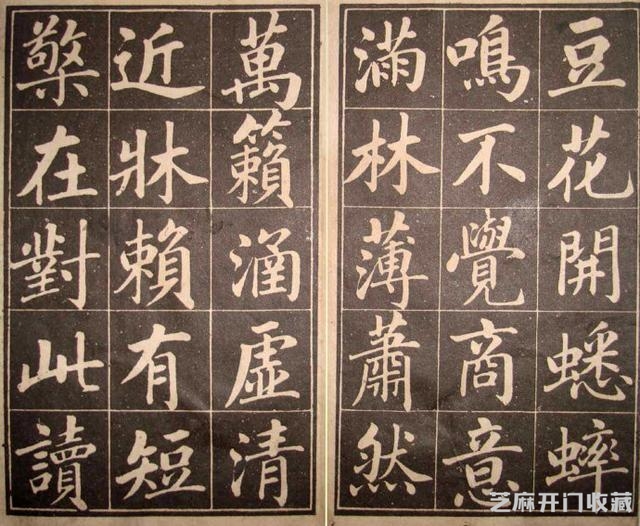 豆花開蟋蟀
鳴不覺商意
滿林薄蕭然
萬籟涵虛清
近牀賴有短
檠在對此讀
芝麻开门收藏